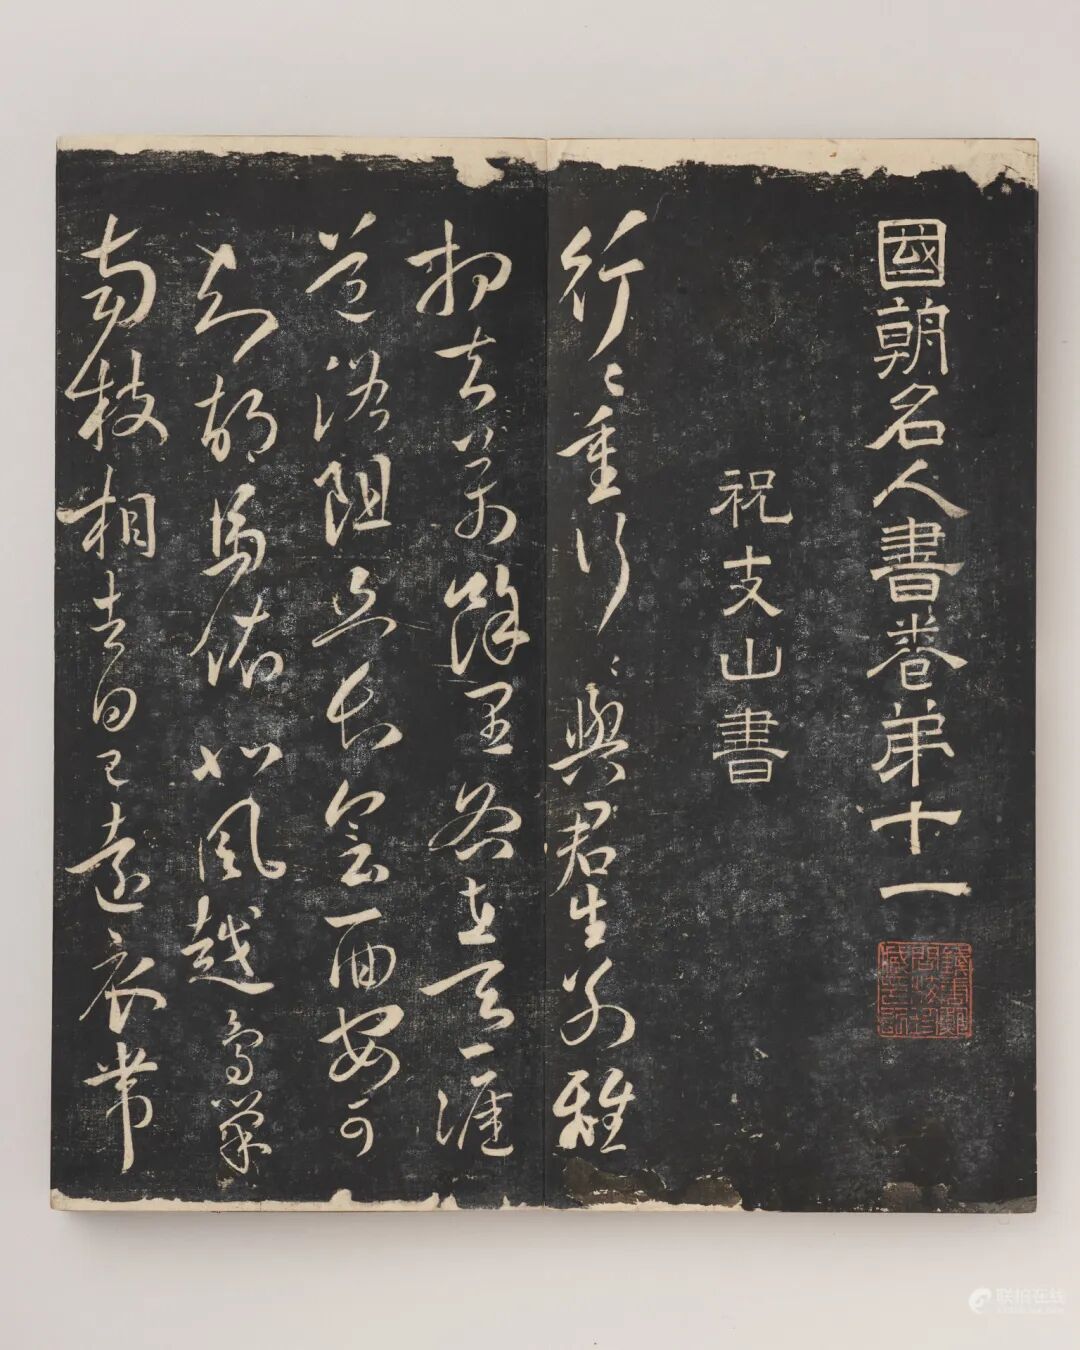 國朝名人書卷弟十一
祝支山書
行〻重行〻與君生別離
相去萬餘里各在天一涯
道路阻且長會面安可
知胡馬依北風越鳥巢
南枝相去日已遠衣帶
联拍在线